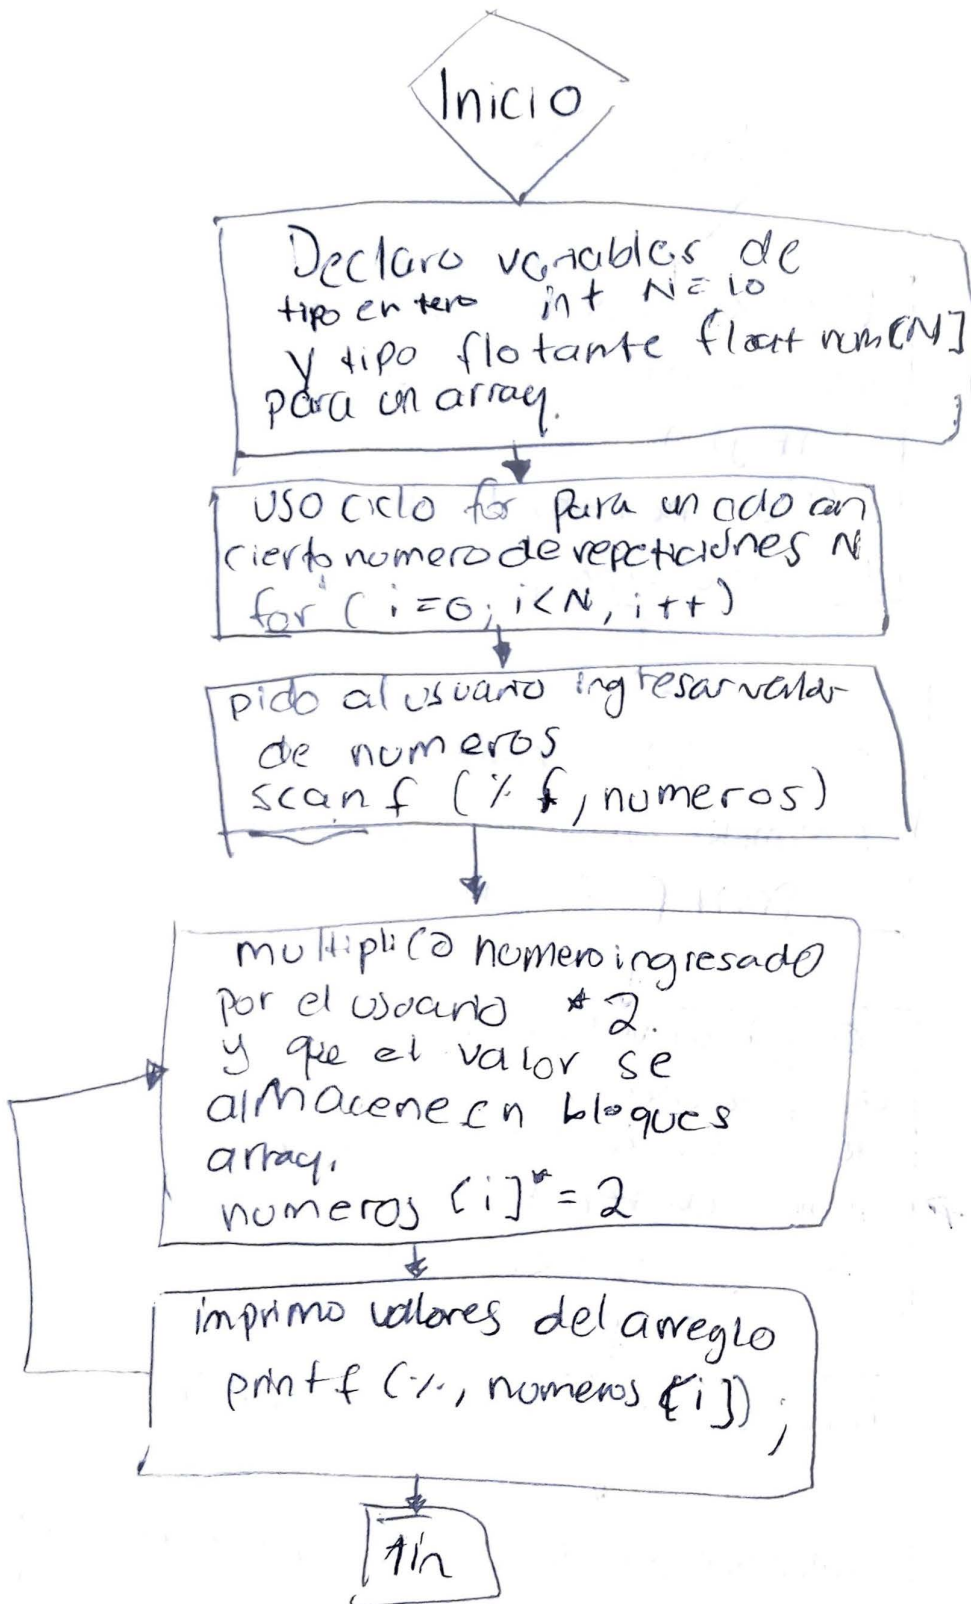 Inicio
Declaro variables de
tipo entero int N=10
y tipo flotante float num[N]
para un array. ;
uso ciclo for para un ciclo con
cierto numero de repeticiones N
for (i=0; i<N, i++)
pido al usuario ingresar valor
de numeros
scanf (% f, numeros)
multiplico numero ingresado
por el usuario *2.
y que el valor se
almacene en bloques
array.
numeros [i]*=2
imprimo valores del arreglo
printf (%, numeros [i]);
fin